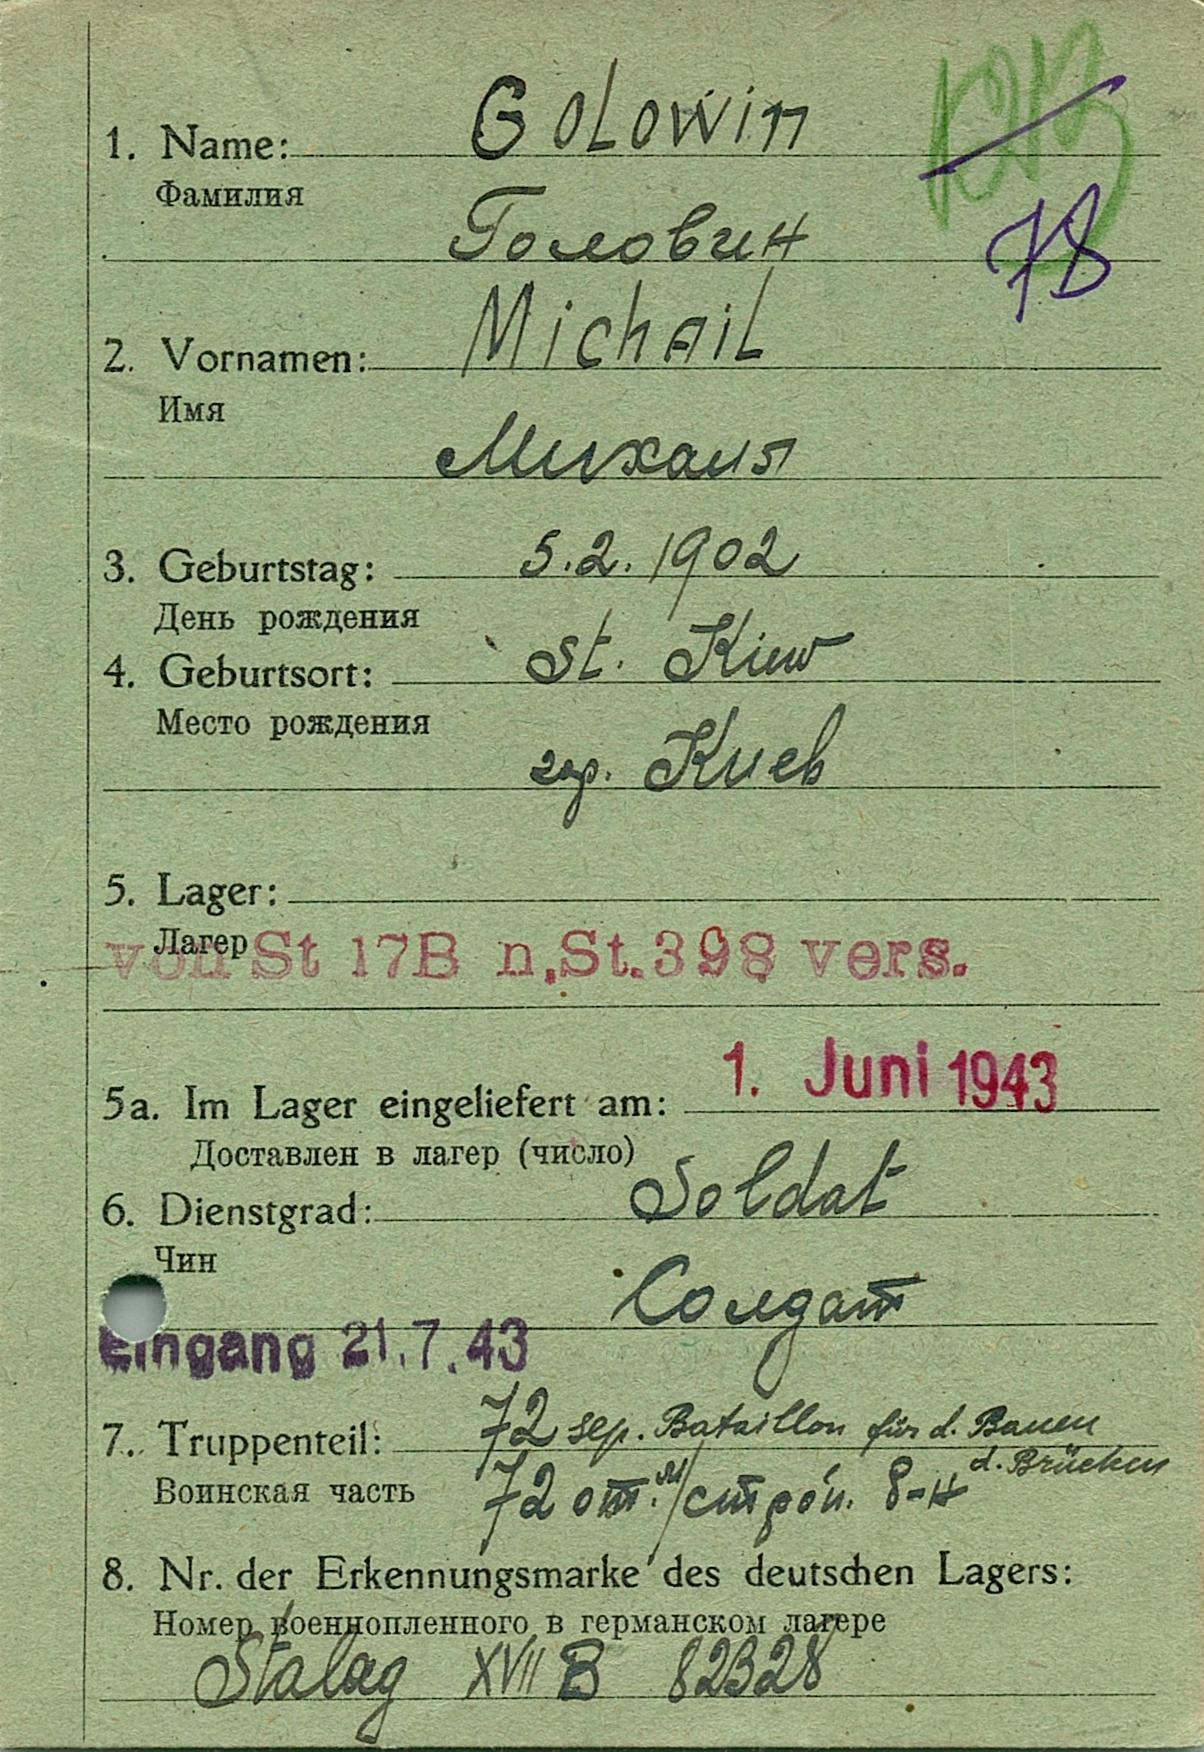 1. Name: Golowin
Фамилия
Головин
78
2. Vornamen: Michail
Имя
Михаил
3. Geburtstag: 5.2.1902
День рождения
4. Geburtsort: St. Kiew
Место рождения
гор. Киев
5. Lager:
Лагер
von St 17B n.St.398 vers.
5a. Im Lager eingeliefert am: 1. Juni 1943
Доставлен в лагер (число)
6. Dienstgrad: Soldat
Чин
Солдат
Eingang 21.7.43
7. Truppenteil: 72 sep. Bataillon für d. Bauen
d. Brücken
Воинская часть 72 от. м/строй. б-н
8. Nr. der Erkennungsmarke des deutschen Lagers:
Номер военнопленного в германском лагере
Stalag XVII B 82328